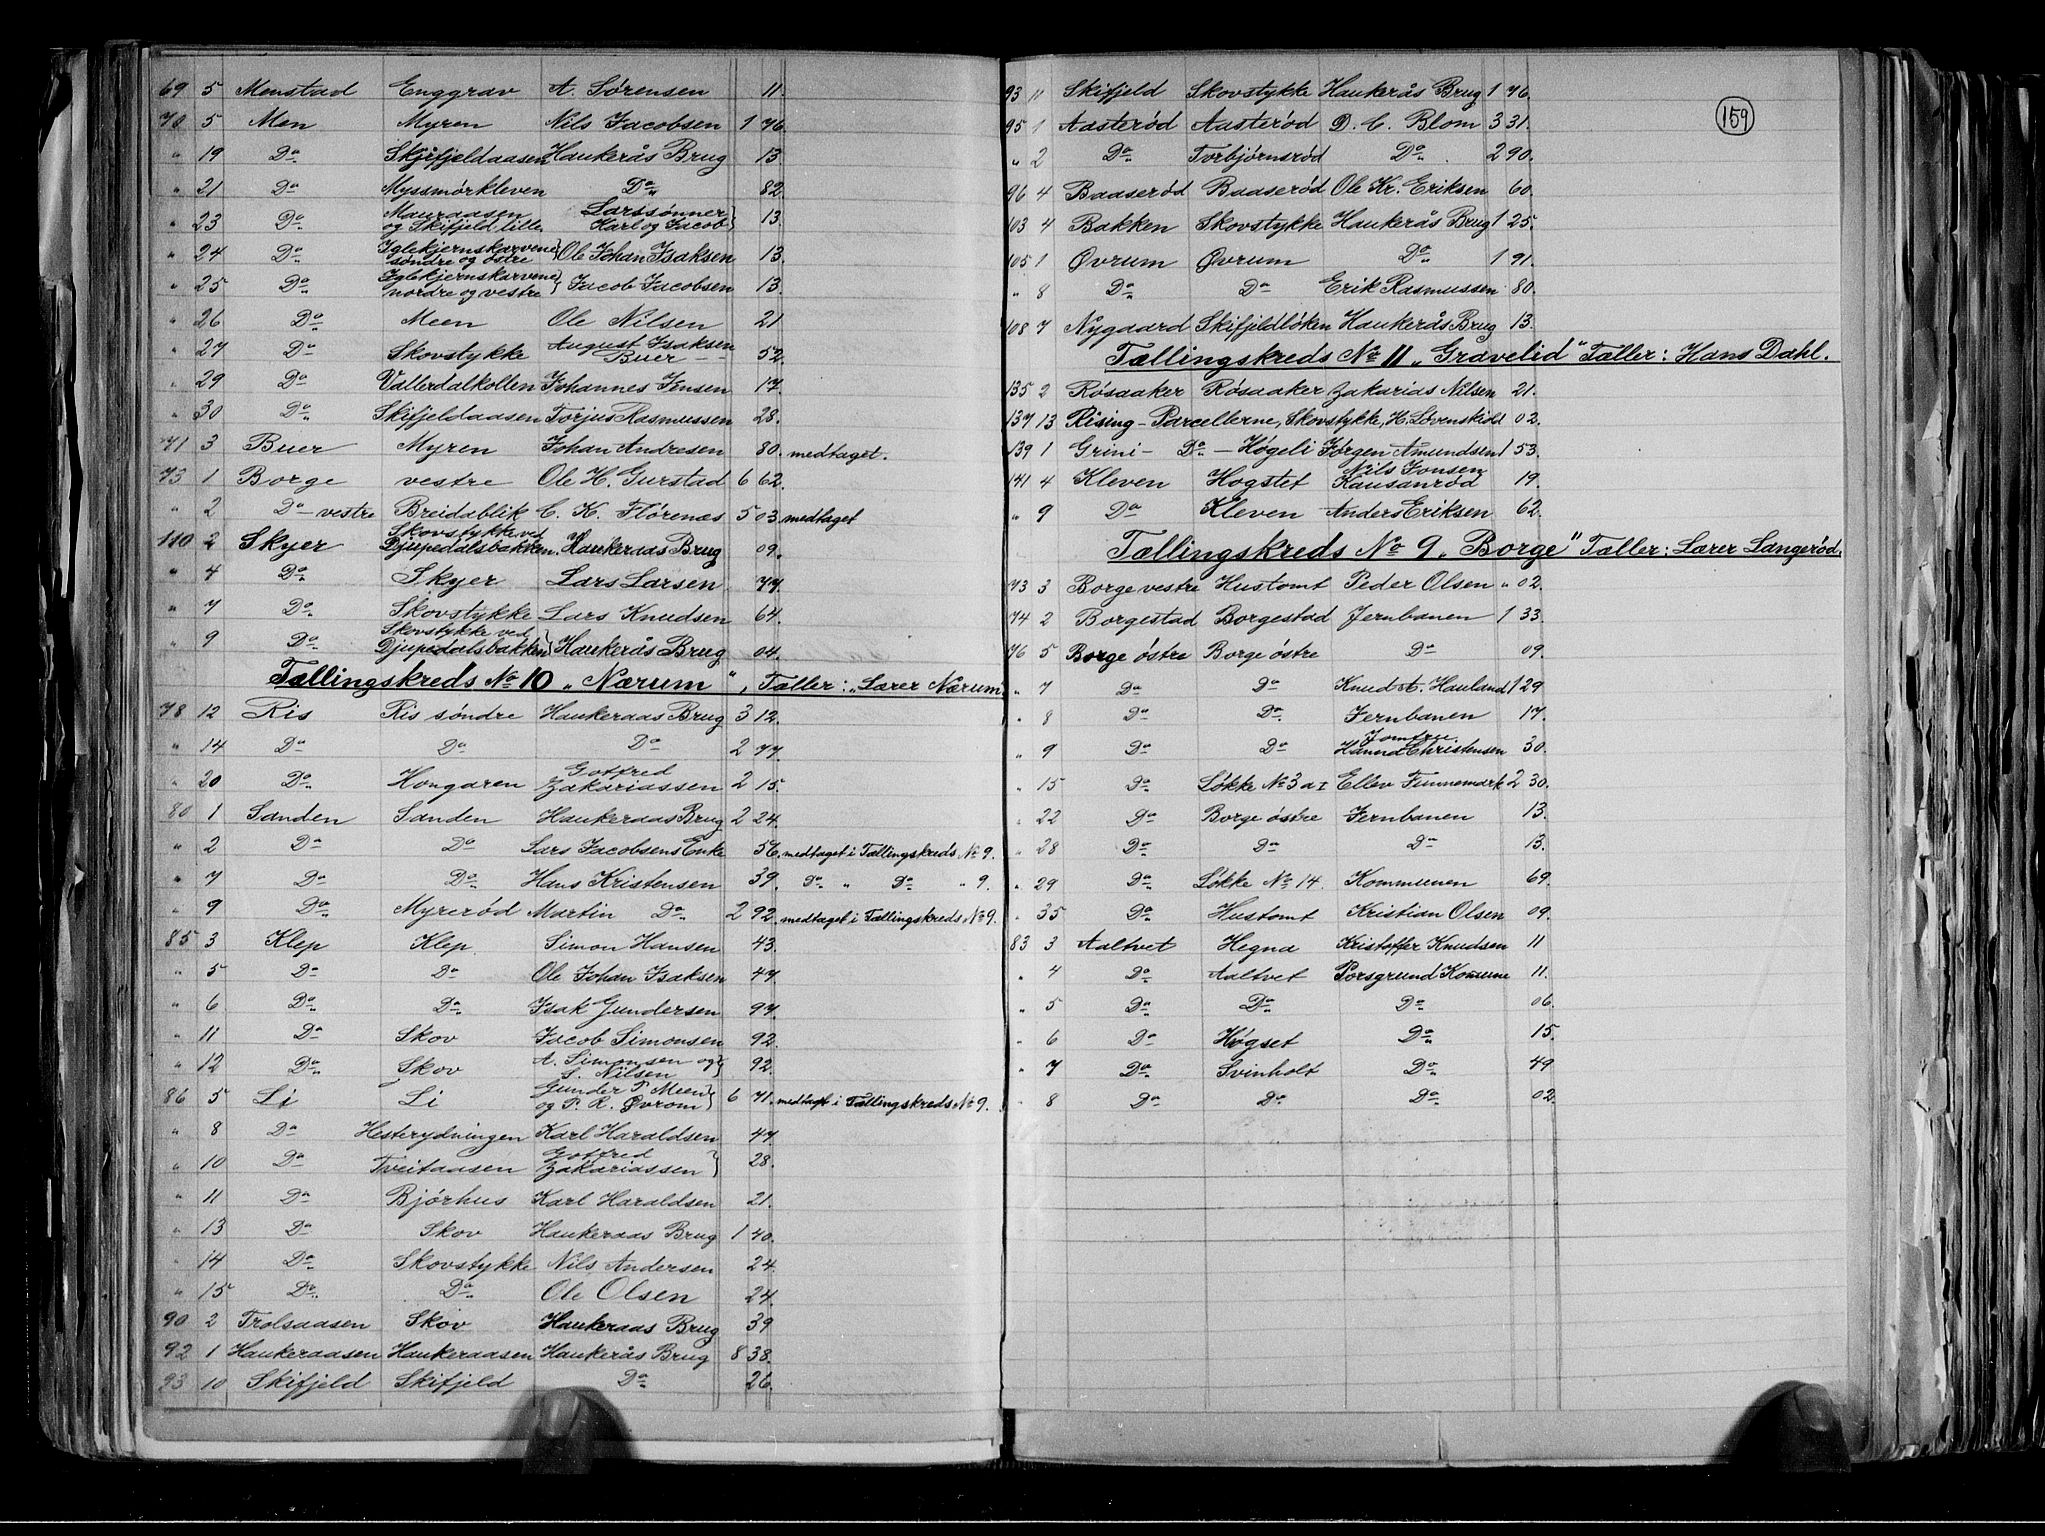 69 5 Menstad Enggrav A. Sørensen 11.
70 5 Men Myren Nils Jacobsen 1 76.
" 19 Do Skifjeldaasen Haukerås Brug 13
" 21 Do Myssmørkleven Do 82.
" 23 Do Mauraasen og Skifjeld lille Larssønner Karl og Jacob } 13.
" 24 Do Iglekjernskarvene søndre og østre } Ole Johan Isaksen 13.
" 25 Do Iglekjernskarvene nordre og vestre } Jacob Jacobsen 13.
" 26 Do Meen Ole Nilsen 21
" 27 Do Skovstykke August Isaksen Buer 52.
" 29 Do Vallerdalkollen Johannes Jensen 17.
" 30 Do Skifjeldaasen Torjus Rasmussen 28.
71 3 Buer Myren Johan Andresen 80. medtaget.
73 1 Borge vestre Ole H. Gurstad 6 62.
" 2 Do vestre Breidablik C. K. Flørenæs 5 03 medtaget
110 2 Skyer Skovstykke ved Djupedalsbakken. Haukeraas Brug 09.
" 4 Do Skyer Lars Larsen 77.
" 7 Do Skovstykke Lars Knudsen 64.
" 9 Do Skovstykke ved Djupedalsbakken } Haukerås Brug 04.
Tællingskreds No 10 „Nærum", Tæller: „Lærer Nærum.
78 12 Ris Ris søndre Haukeraas Brug 3 12.
" 14 Do Do Do 2 77.
" 20 Do Hongaren Gotfred Zakariassen 2 15.
80 1 Sanden Sanden Haukeraas Brug 2 24.
" 2 Do Do Lars Jacobsens Enke 56. medtaget i Tællingskreds No 9.
" 7 Do Do Hans Kristensen 39. Do " Do " 9.
" 9 Do Myrerød Martin Do 2 92. medtaget i Tællingskreds No 9.
85 3 Klep Klep Simon Hansen 43.
" 5 Do Do Ole Johan Isaksen 47.
" 6 Do Do Isak Gundersen 97.
" 11 Do Skov Jacob Simonsen 92.
" 12 Do Skov A. Simonsen og S. Nilsen } 92.
86 5 Li Li Gunder P. Meen og P. R. Øvrom } 6 71. medtagt i Tællingskreds No 9.
" 8 Do Hesterydningen Karl Haraldsen 47.
" 10 Do Tveitaasen Gotfred Zakariassen } 28.
" 11 Do Bjørhus Karl Haraldsen 21.
" 13 Do Skov Haukeraas Brug 1 40.
" 14 Do Skovstykke Nils Andersen 24.
" 15 Do Do Ole Olsen 24.
90 2 Trolsaasen Skov Haukeraas Brug 39
92 1 Haukeraasen Haukeraasen Haukerås Brug 8 38.
93 10 Skifjeld Skifjeld Do 26.
159
93 11 Skifjeld Skovstykke Haukerås Brug 1 76.
95 1 Aasterød Aasterød D. C. Blom 3 31.
" 2 Do Torbjørnsrød Do 2 90.
96 4 Baaserød Baaserød Ole Kr. Eriksen 60.
103 4 Bakken Skovstykke Haukerås Brug 1 25.
105 1 Øvrum Øvrum Do 1 91.
" 8 Do Do Erik Rasmussen 80.
108 7 Nygaard Skifjeldløken Haukerås Brug 13.
Tællingskreds No 11 „Gravelid" Tæller: Hans Dahl.
135 2 Røsaaker Røsaaker Zakarias Nilsen 21.
137 13 Rising - Parcellerne, Skovstykke, H. Løvenskiold 02.
139 1 Grini - Do - Høgeli Jørgen Amundsen 1 53.
141 4 Kleven Hogstet Nils Jonsen Kausanrød 19.
" 9 Do Kleven Anders Eriksen 62.
Tællingskreds No 9 „Borge" Tæller: Lærer Langerød.
73 3 Borge vestre Hustomt Peder Olsen " 02.
74 2 Borgestad Borgestad Jernbanen 1 33.
76 5 Borge østre Borge østre Do 09.
" 7 Do Do Knud A. Hauland 1 29
" 8 Do Do Jernbanen 17.
" 9 Do Do Jomfru Hanna Christensen 30.
" 15 Do Løkke No 3 a I Ellev Finnemark 2 30.
" 22 Do Borge østre Jernbanen 13.
" 28 Do Do Do 13.
" 29 Do Løkke No 14. Kommunen 69.
" 35 Do Hustomt Kristian Olsen 09.
83 3 Aaltvet Hegna Kristoffer Knudsen 11
" 4 Do Aaltvet Porsgrund Komune 11.
" 5 Do Do Do 06.
" 6 Do Høgset Do 15.
" 7 Do Svinholt Do 49
" 8 Do Do Do 02.